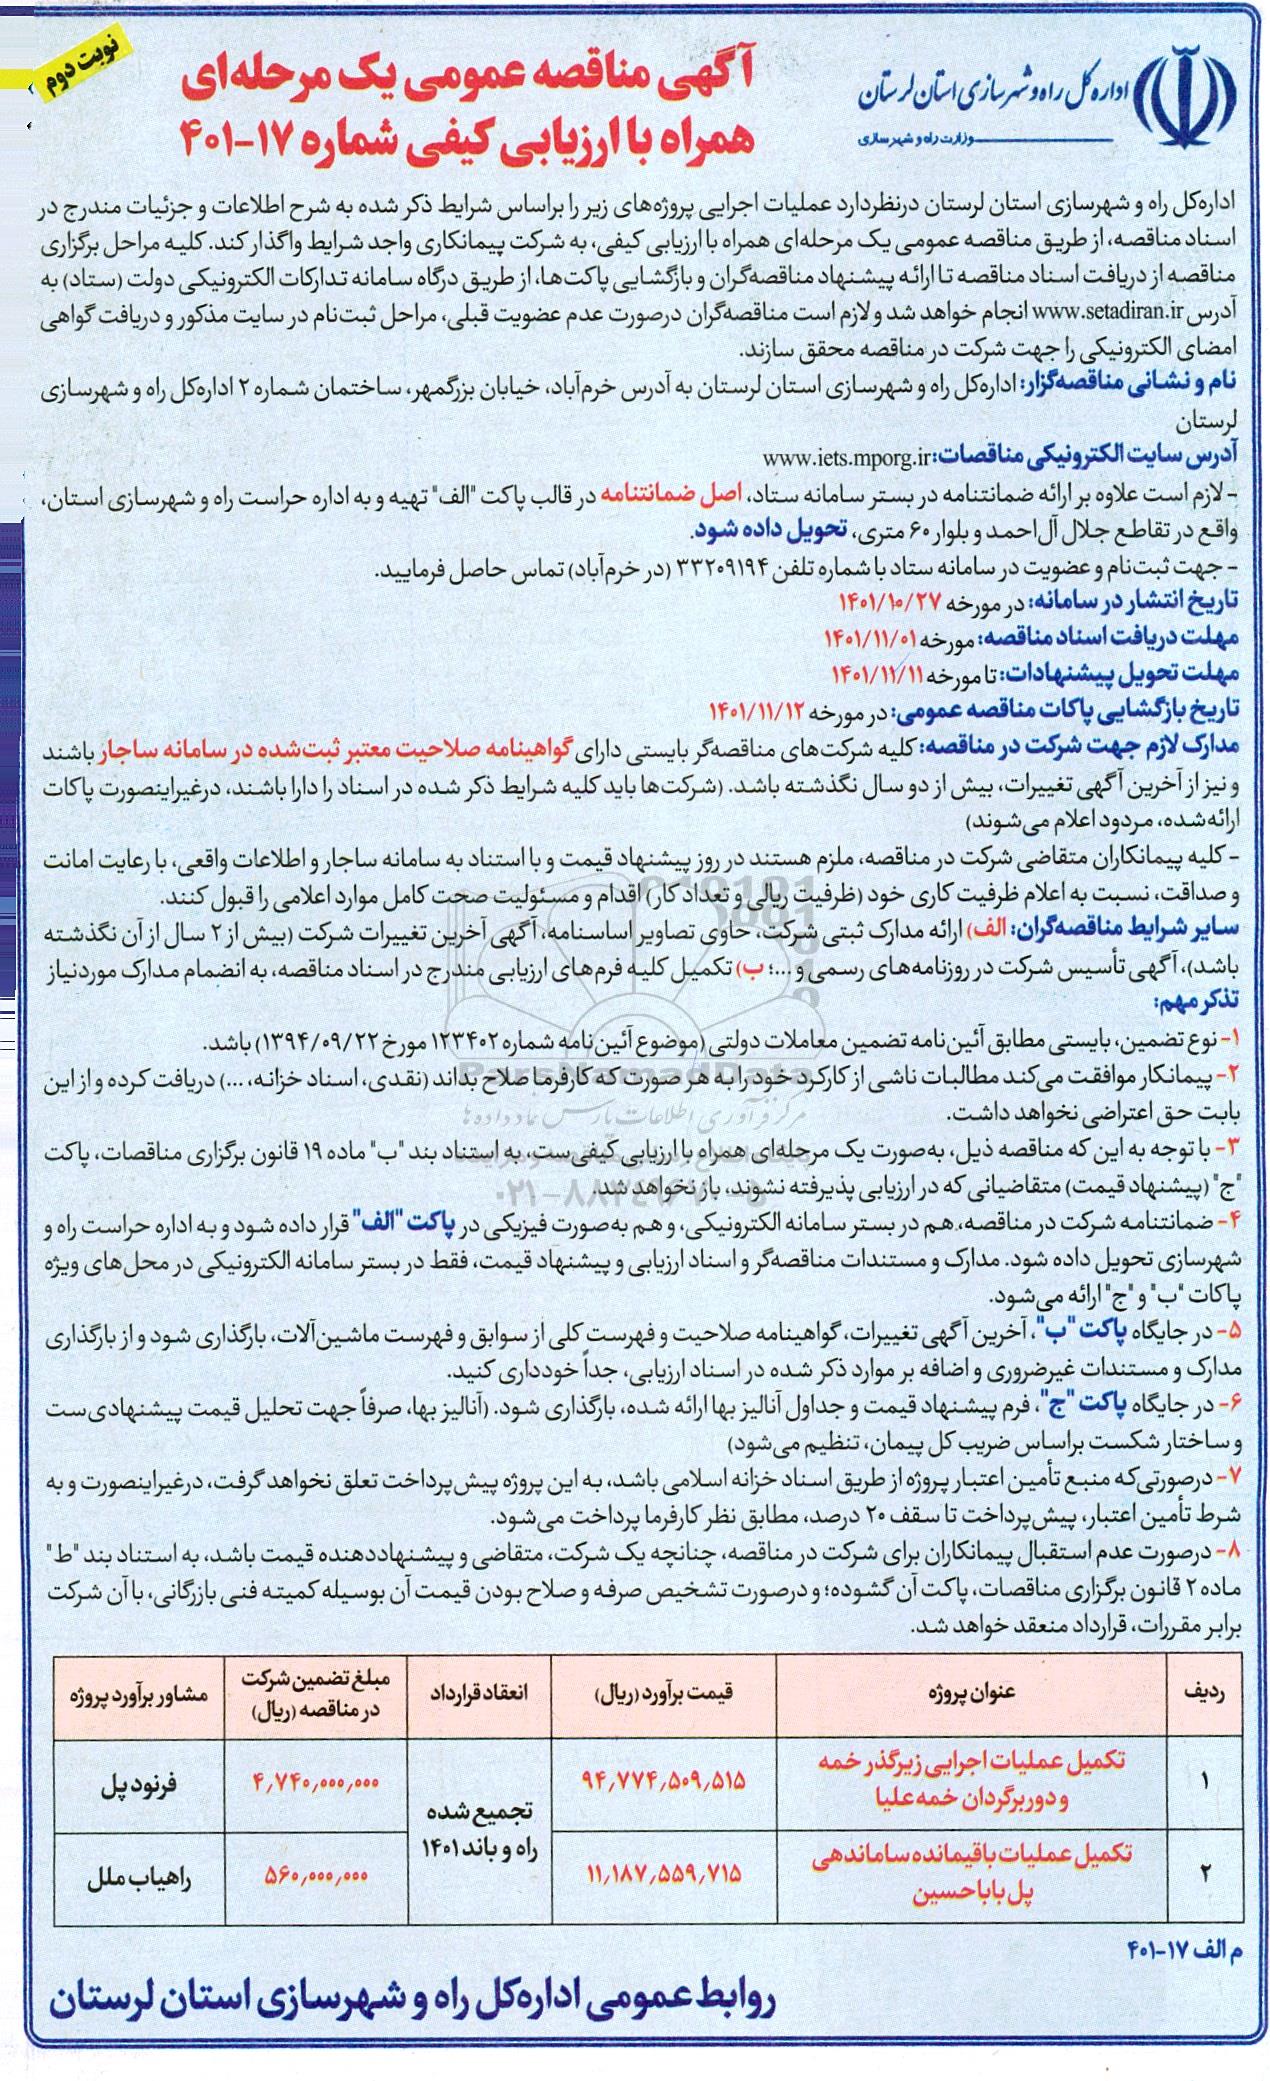 نوبت دوم
اداره کل راه و شهرسازی استان لرستان
وزارت راه و شهرسازی
آگهی مناقصه عمومی یک مرحله‌ای
همراه با ارزیابی کیفی شماره ۱۷-۴۰۱
اداره‌کل راه و شهرسازی استان لرستان درنظردارد عملیات اجرایی پروژه‌های زیر را براساس شرایط ذکر شده به شرح اطلاعات و جزئیات مندرج در
اسناد مناقصه، از طریق مناقصه عمومی یک مرحله‌ای همراه با ارزیابی کیفی، به شرکت پیمانکاری واجد شرایط واگذار کند. کلیه مراحل برگزاری
مناقصه از دریافت اسناد مناقصه تا ارائه پیشنهاد مناقصه‌گران و بازگشایی پاکت‌ها، از طریق درگاه سامانه تدارکات الکترونیکی دولت (ستاد) به
آدرس www.setadiran.ir انجام خواهد شد و لازم است مناقصه‌گران درصورت عدم عضویت قبلی، مراحل ثبت‌نام در سایت مذکور و دریافت گواهی
امضای الکترونیکی را جهت شرکت در مناقصه محقق سازند.
نام و نشانی مناقصه‌گزار: اداره‌کل راه و شهرسازی استان لرستان به آدرس خرم‌آباد، خیابان بزرگمهر، ساختمان شماره ۲ اداره‌کل راه و شهرسازی
لرستان
آدرس سایت الکترونیکی مناقصات: www.iets.mporg.ir
- لازم است علاوه بر ارائه ضمانتنامه در بستر سامانه ستاد، اصل ضمانتنامه در قالب پاکت "الف" تهیه و به اداره حراست راه و شهرسازی استان،
واقع در تقاطع جلال آل‌احمد و بلوار ۶۰ متری، تحویل داده شود.
- جهت ثبت‌نام و عضویت در سامانه ستاد با شماره تلفن ۳۳۲۰۹۱۹۴ (در خرم‌آباد) تماس حاصل فرمایید.
تاریخ انتشار در سامانه: در مورخه ۱۴۰۱/۱۰/۲۷
مهلت دریافت اسناد مناقصه: مورخه ۱۴۰۱/۱۱/۰۱
مهلت تحویل پیشنهادات: تا مورخه ۱۴۰۱/۱۱/۱۱
تاریخ بازگشایی پاکات مناقصه عمومی: در مورخه ۱۴۰۱/۱۱/۱۲
مدارک لازم جهت شرکت در مناقصه: کلیه شرکت‌های مناقصه‌گر بایستی دارای گواهینامه صلاحیت معتبر ثبت‌شده در سامانه ساجار باشند
و نیز از آخرین آگهی تغییرات، بیش از دو سال نگذشته باشد. (شرکت‌ها باید کلیه شرایط ذکر شده در اسناد را دارا باشند، درغیراینصورت پاکات
ارائه‌شده، مردود اعلام می‌شوند)
- کلیه پیمانکاران متقاضی شرکت در مناقصه، ملزم هستند در روز پیشنهاد قیمت و با استناد به سامانه ساجار و اطلاعات واقعی، با رعایت امانت
و صداقت، نسبت به اعلام ظرفیت کاری خود (ظرفیت ریالی و تعداد کار) اقدام و مسئولیت صحت کامل موارد اعلامی را قبول کنند.
سایر شرایط مناقصه‌گران: الف) ارائه مدارک ثبتی شرکت، حاوی تصاویر اساسنامه، آگهی آخرین تغییرات شرکت (بیش از ۲ سال از آن نگذشته
باشد)، آگهی تأسیس شرکت در روزنامه‌های رسمی و ...؛ ب) تکمیل کلیه فرم‌های ارزیابی مندرج در اسناد مناقصه، به انضمام مدارک موردنیاز
تذکر مهم:
۱- نوع تضمین، بایستی مطابق آئین‌نامه تضمین معاملات دولتی (موضوع آئین‌نامه شماره ۱۲۳۴۰۲ مورخ ۱۳۹۴/۰۹/۲۲) باشد.
۲- پیمانکار موافقت می‌کند مطالبات ناشی از کارکرد خود را به هر صورت که کارفرما صلاح بداند (نقدی، اسناد خزانه، ...) دریافت کرده و از این
بابت حق اعتراضی نخواهد داشت.
۳- با توجه به این که مناقصه ذیل، به‌صورت یک مرحله‌ای همراه با ارزیابی کیفی‌ست، به استناد بند "ب" ماده ۱۹ قانون برگزاری مناقصات، پاکت
"ج" (پیشنهاد قیمت) متقاضیانی که در ارزیابی پذیرفته نشوند، باز نخواهد شد.
۴- ضمانتنامه شرکت در مناقصه، هم در بستر سامانه الکترونیکی، و هم به‌صورت فیزیکی در پاکت "الف" قرار داده شود و به اداره حراست راه و
شهرسازی تحویل داده شود. مدارک و مستندات مناقصه‌گر و اسناد ارزیابی و پیشنهاد قیمت، فقط در بستر سامانه الکترونیکی در محل‌های ویژه
پاکات "ب" و "ج" ارائه می‌شود.
۵- در جایگاه پاکت "ب"، آخرین آگهی تغییرات، گواهینامه صلاحیت و فهرست کلی از سوابق و فهرست ماشین‌آلات، بارگذاری شود و از بارگذاری
مدارک و مستندات غیرضروری و اضافه بر موارد ذکر شده در اسناد ارزیابی، جداً خودداری کنید.
۶- در جایگاه پاکت "ج"، فرم پیشنهاد قیمت و جداول آنالیز بها ارائه شده، بارگذاری شود. (آنالیز بها، صرفاً جهت تحلیل قیمت پیشنهادی‌ست
و ساختار شکست براساس ضریب کل پیمان، تنظیم می‌شود)
۷- درصورتی‌که منبع تأمین اعتبار پروژه از طریق اسناد خزانه اسلامی باشد، به این پروژه پیش‌پرداخت تعلق نخواهد گرفت، درغیراینصورت و به
شرط تأمین اعتبار، پیش‌پرداخت تا سقف ۲۰ درصد، مطابق نظر کارفرما پرداخت می‌شود.
۸- درصورت عدم استقبال پیمانکاران برای شرکت در مناقصه، چنانچه یک شرکت، متقاضی و پیشنهاددهنده قیمت باشد، به استناد بند "ط"
ماده ۲ قانون برگزاری مناقصات، پاکت آن گشوده؛ و درصورت تشخیص صرفه و صلاح بودن قیمت آن بوسیله کمیته فنی بازرگانی، با آن شرکت
برابر مقررات، قرارداد منعقد خواهد شد.
ردیف | عنوان پروژه | قیمت برآورد (ریال) | انعقاد قرارداد | مبلغ تضمین شرکت در مناقصه (ریال) | مشاور برآورد پروژه
۱ | تکمیل عملیات اجرایی زیرگذر خمه و دوربرگردان خمه علیا | ۹۴,۷۷۴,۵۰۹,۵۱۵ | تجمیع شده راه و باند ۱۴۰۱ | ۴,۷۴۰,۰۰۰,۰۰۰ | فرنود پل
۲ | تکمیل عملیات باقیمانده ساماندهی پل باباحسین | ۱۱,۱۸۷,۵۵۹,۷۱۵ | ۵۶۰,۰۰۰,۰۰۰ | راهیاب ملل
م الف ۱۷-۴۰۱
روابط عمومی اداره‌کل راه و شهرسازی استان لرستان
ParsNamadData
مرکز فرآوری اطلاعات پارس نماد داده‌ها